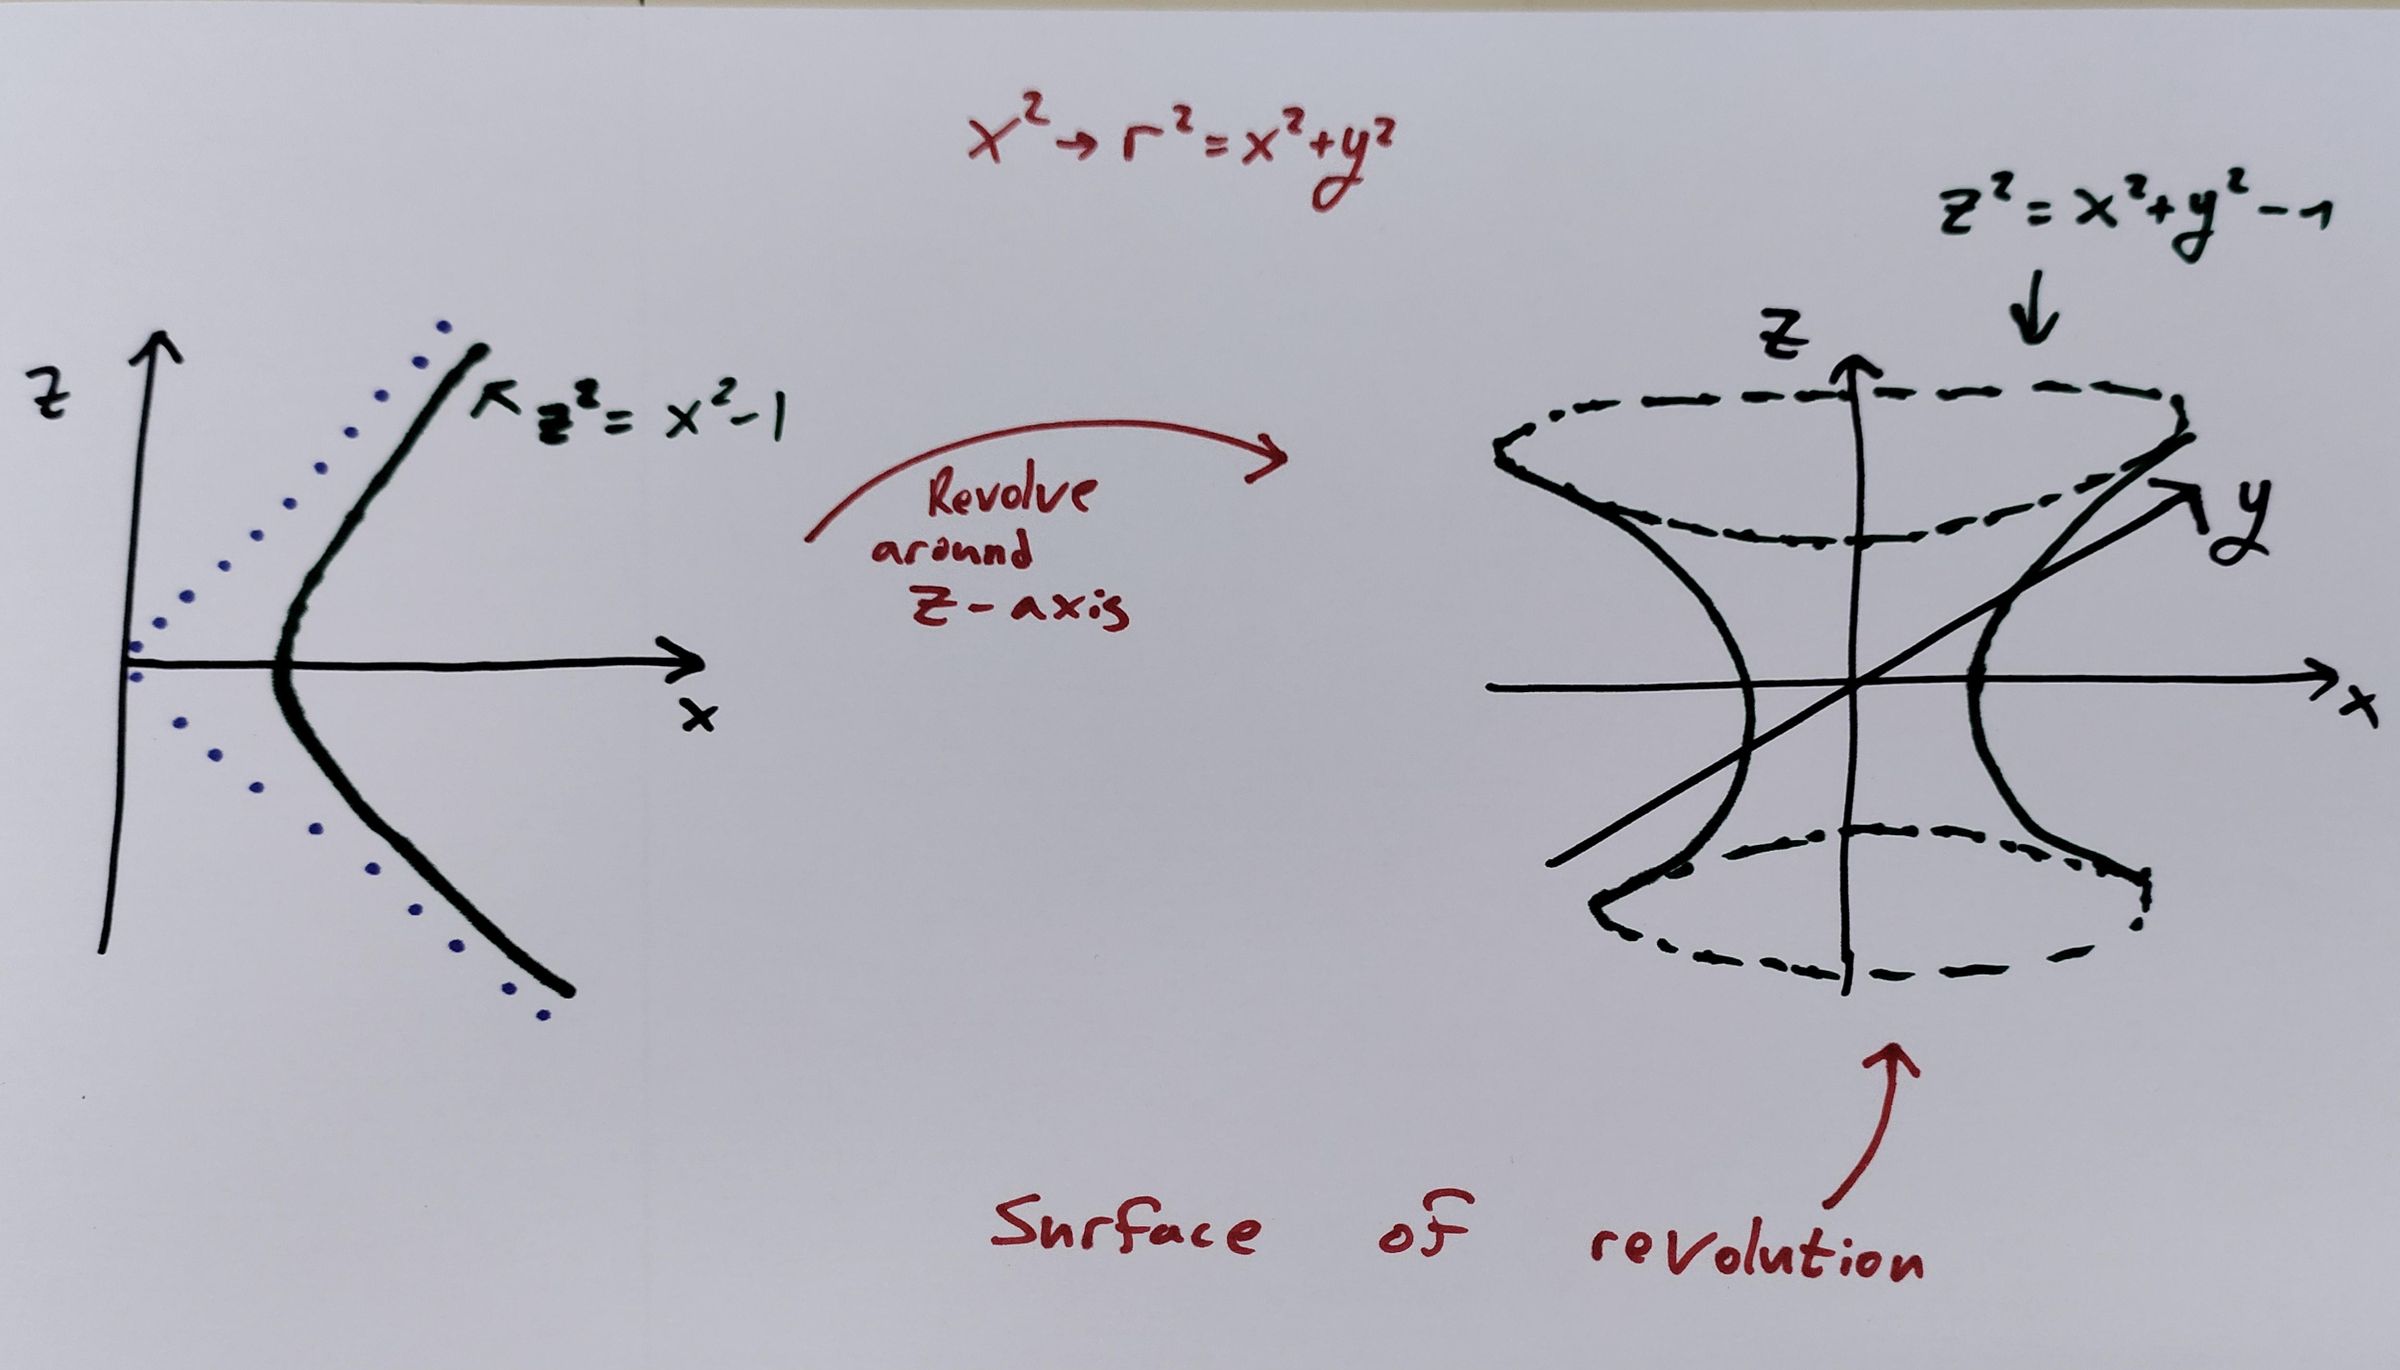 x² → r² = x² + y²
z² = x² + y² - 1
z
z² = x² - 1
x
Revolve
around
z-axis
z
y
x
Surface of revolution